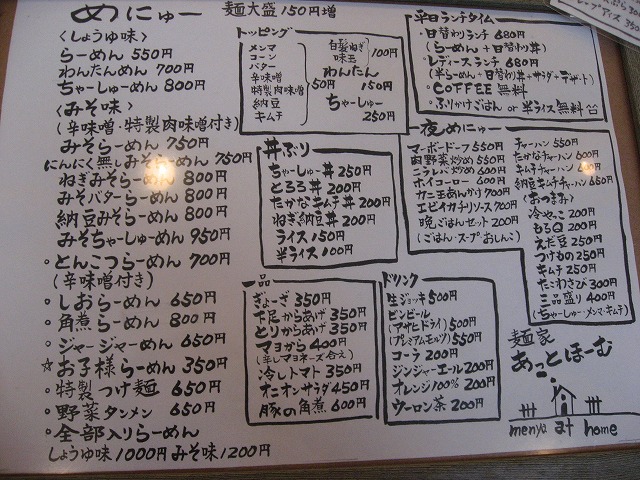 めにゅー 麺大盛150円増
〈しょうゆ味〉
らーめん 550円
わんたんめん 700円
ちゃーしゅーめん 800円
〈みそ味〉
(辛味噌・特製肉味噌付き)
みそらーめん 750円
にんにく無しみそらーめん 750円
ねぎみそらーめん 800円
みそバターらーめん 800円
納豆みそらーめん 800円
みそちゃーしゅーめん 950円
・とんこつらーめん 700円
(辛味噌付き)
・しおらーめん 650円
・角煮らーめん 800円
・ジャージャーめん 650円
☆お子様らーめん 350円
・特製つけ麺 650円
・野菜タンメン 650円
・全部入りらーめん
しょうゆ味1000円 みそ味1200円
トッピング
メンマ
コーン
バター
辛味噌
特製肉味噌
納豆
キムチ
50円
白髪ねぎ
味玉
100円
わんたん
150円
ちゃーしゅー
250円
丼ぶり
ちゃーしゅー丼 250円
とろろ丼 200円
たかなキムチ丼 200円
ねぎ納豆丼 200円
ライス 150円
半ライス 100円
一品
ぎょーざ 350円
千足からあげ 350円
とりからあげ 350円
マヨから 400円
(辛しマヨネーズ合え)
冷しトマト 350円
オニオンサラダ 450円
豚の角煮 600円
平日ランチタイム
・日替わりランチ 680円
(らーめん+日替わり丼)
・レディースランチ 680円
(半らーめん+日替わり丼+サラダ+デザート)
・COFFEE 無料
・ふりかけごはん or 半ライス無料
夜めにゅー
マーボードーフ 550円
肉野菜炒め 550円
ニラレバ炒め 600円
ホイコーロー 600円
カニ玉あんかけ 700円
エビイカチリソース 700円
晩ごはんセット 200円
(ごはん・スープ・おしんこ)
チャーハン 550円
たかなチャーハン 600円
キムチチャーハン 600円
納豆キムチチャーハン 650円
(おつまみ)
冷やっこ 200円
もろQ 200円
えだ豆 250円
つけもの 250円
キムチ 250円
たこわさび 300円
三品盛り 400円
(ちゃーしゅー・メンマ・キムチ)
ドリンク
生ジョッキ 500円
ビンビール
(アサヒドライ) 500円
(プレミアムモルツ) 550円
コーラ 200円
ジンジャーエール 200円
オレンジ100% 200円
ウーロン茶 200円
麺家
あっとほーむ
menya at home